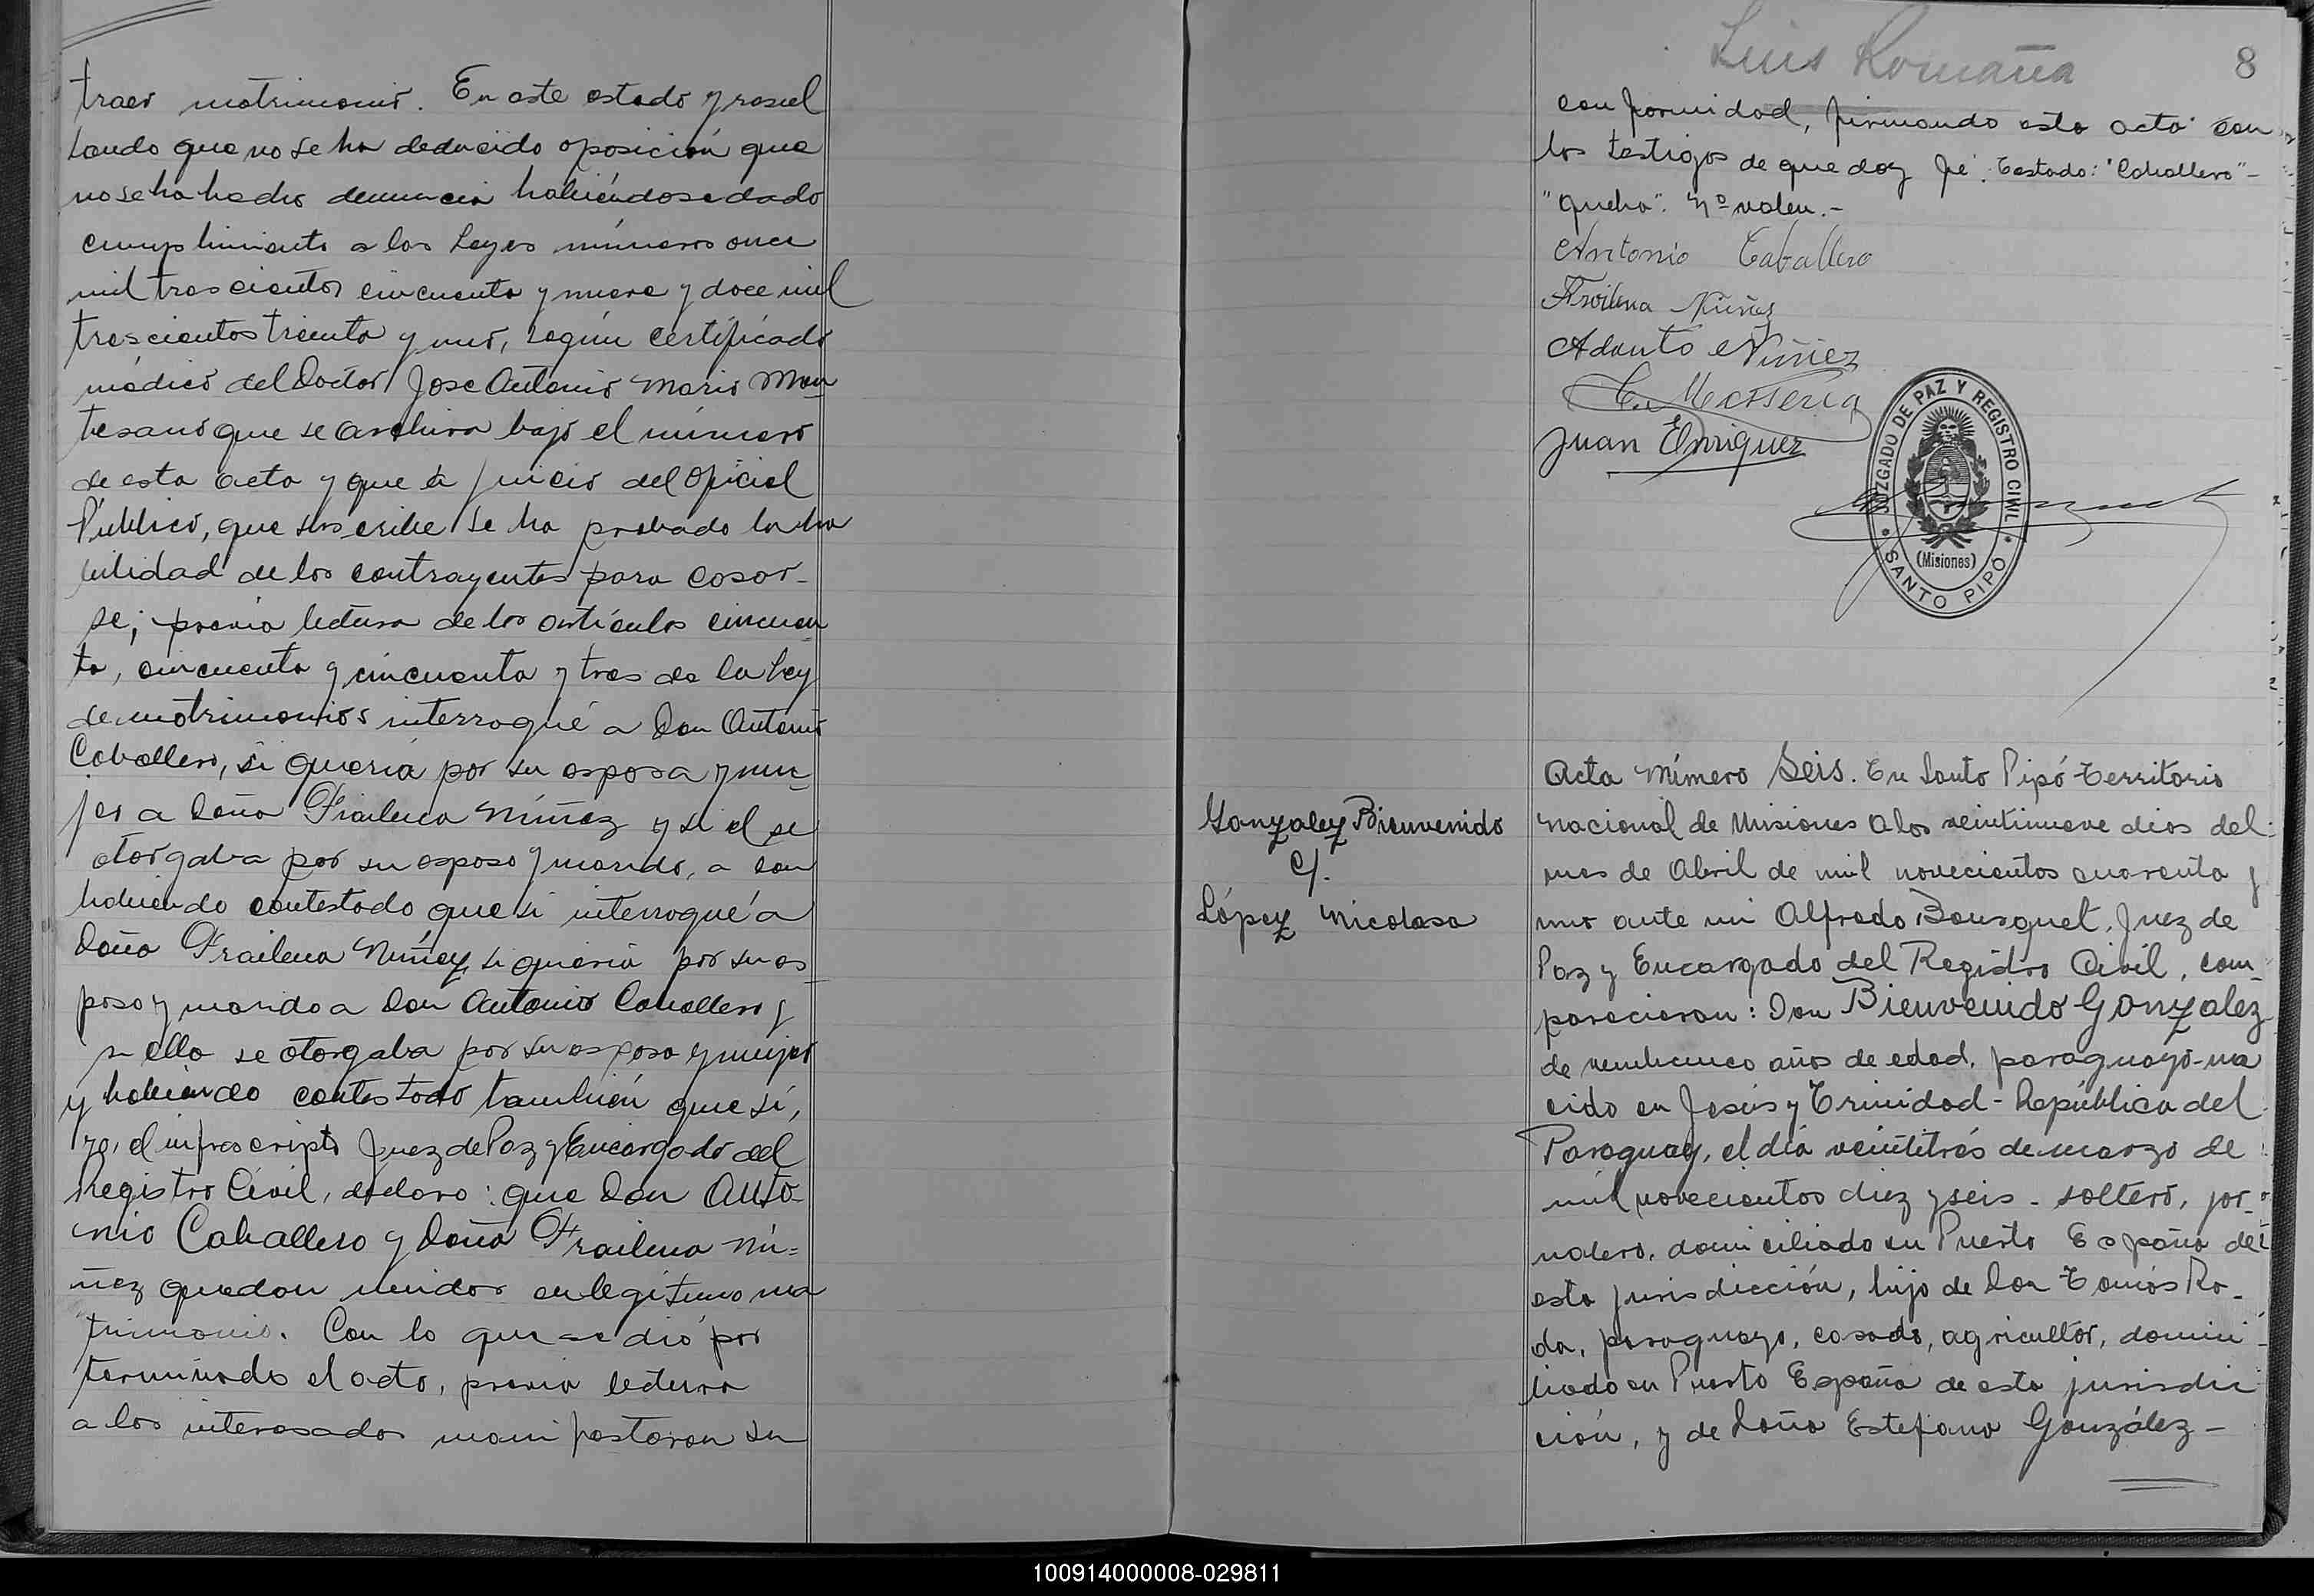 traer matrimonio. En este estado y resul
tando que no se ha deducido oposición que
no se ha hecho denuncia habiéndose dado
cumplimiento a las Leyes números once
mil trescientos cincuenta y nueve y doce mil
trescientos treinta y uno, según certificado
médico del Doctor Jose Antonio Mario Mon
tesano que se archiva bajo el número
de esta acta y que a juicio del Oficial
Público, que suscribe se ha probado la ha
bilidad de los contrayentes para casar-
se; previa lectura de los artículos cincuen
ta, cincuenta y cincuenta y tres de la Ley
de matrimonios interrogué a Don Antonio
Caballero, si quería por su esposa y mu-
jer a Doña Frailena Núñez y si el se
otorgaba por su esposo y marido, a
habiendo contestado que si interrogué a
Doña Frailena Núñez si quería por su es
poso y marido a Don Antonio Caballero y
si ella se otorgaba por su esposa y mujer
y habiendo contestado también que sí,
yo, el infrascripto Juez de Paz y Encargado del
Registro Civil, declaro: que Don Anto-
nio Caballero y Doña Frailena Nú=
ñez quedan unidos en legítimo ma
trimonio. Con lo que se dió por
terminado el acto, previa lectura
a los interesados manifestaron su
Luis Romaña
8
conformidad, firmando esta acta con
los testigos de que doy fé. Testado: "Caballero"-
"queha". Nº valen.-
Antonio Caballero
Froilena Núñez
Adanto Núñez
Juan Enriquez
JUZGADO DE PAZ Y REGISTRO CIVIL
(Misiones)
SANTO PIPÓ
Gonzalez Bienvenido
c/.
López Nicolasa
Acta Número Seis. En Santo Pipó Territorio
Nacional de Misiones a los veintinueve dias del
mes de Abril de mil novecientos cuarenta y
uno ante mi Alfredo Bousquet, Juez de
Paz y Encargado del Registro Civil, com-
parecieron: Don Bienvenido Gonzalez
de veinticinco años de edad, paraguayo-na
cido en Jesús y Trinidad - República del
Paraguay, el día veintitrés de marzo de
mil novecientos diez y seis - soltero, jor-
nalero, domiciliado en Puerto España de
esta jurisdicción, hijo de Don Tomás Ro-
da, paraguayo, casado, agricultor, domici-
liado en Puerto España de esta jurisdic
ción, y de Doña Estefana González-
100914000008-029811